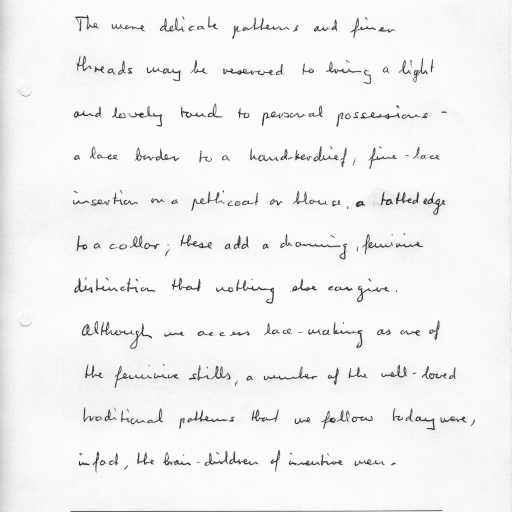 The more delicate patterns and finer
threads may be reserved to bring a light
and lovely touch to personal possessions -
a lace border to a handkerchief, fine-lace
insertion on a petticoat or blouse, a tatted edge
to a collar; these add a charming, feminine
distinction that nothing else can give.
Although we access lace-making as one of
the feminine skills, a number of the well-loved
traditional patterns that we follow today were,
in fact, the brain-children of inventive men.